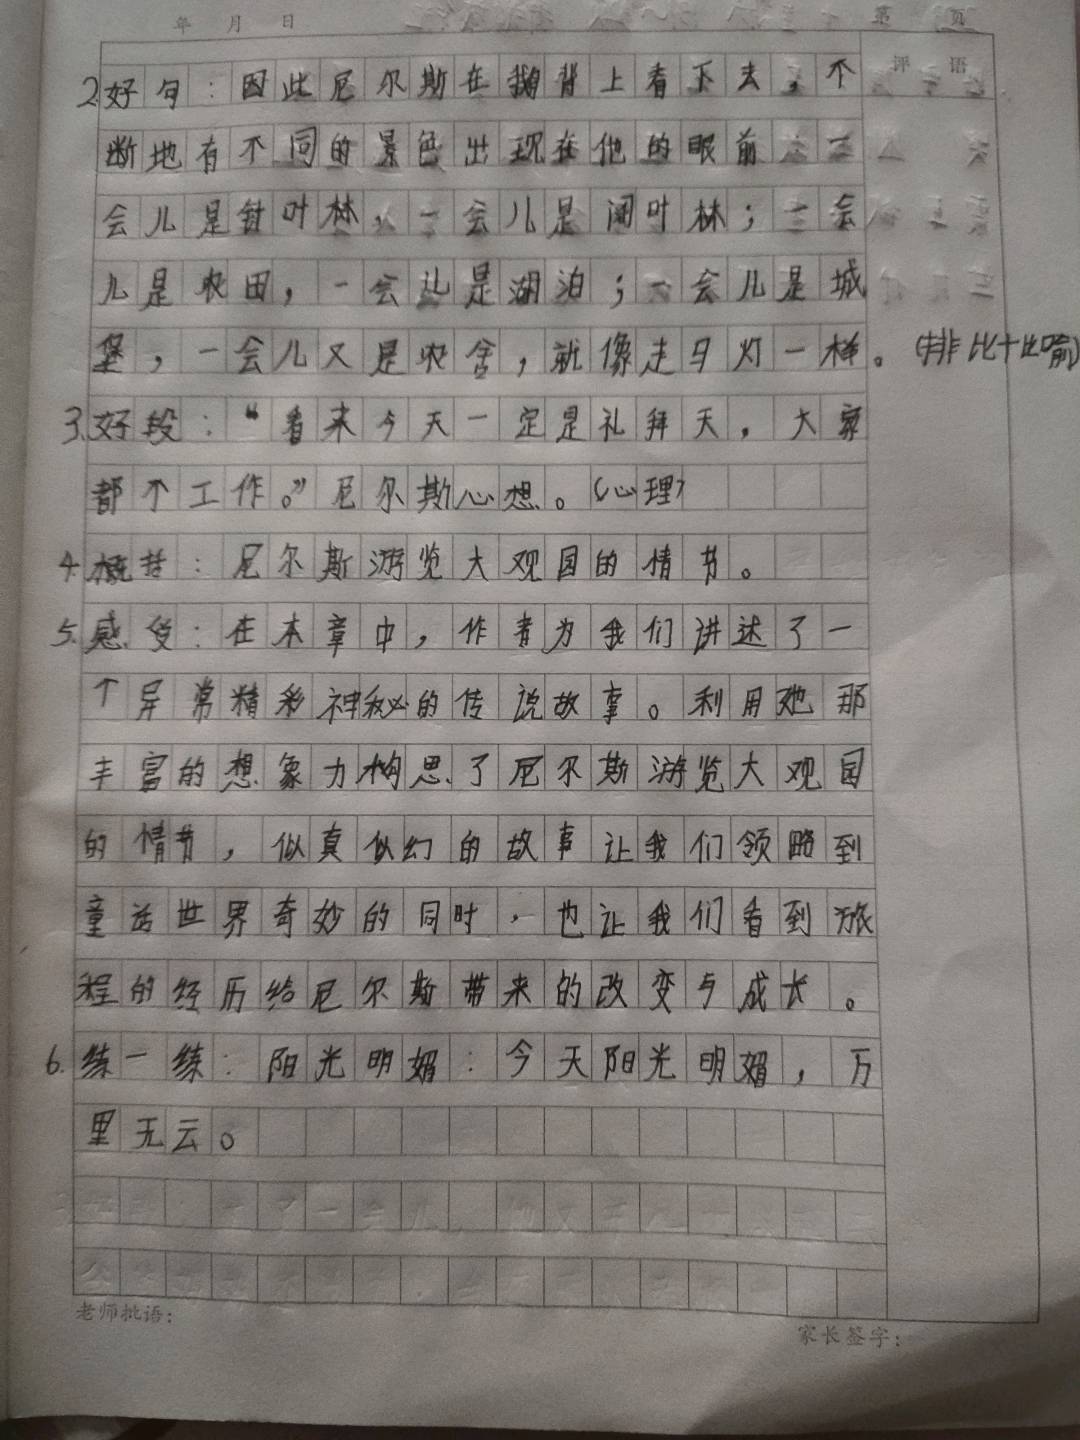 年 月 日
第 页
评 语
2.好句：因此尼尔斯在鹅背上看下去，不
断地有不同的景色出现在他的眼前 一
会儿是针叶林，一会儿是阔叶林；一会
儿是农田，一会儿是湖泊；一会儿是城
堡，一会儿又是农舍，就像走马灯一样。（排比+比喻）
3.好段：“看来今天一定是礼拜天，大家
都不工作。”尼尔斯心想。（心理）
4.概括：尼尔斯游览大观国的情节。
5.感受：在本章中，作者为我们讲述了一
个异常精彩神秘的传说故事。利用她那
丰富的想象力构思了尼尔斯游览大观国
的情节，似真似幻的故事让我们领略到
童话世界奇妙的同时，也让我们看到旅
程的经历给尼尔斯带来的改变与成长。
6.练一练：阳光明媚：今天阳光明媚，万
里无云。
老师批语：
家长签字：